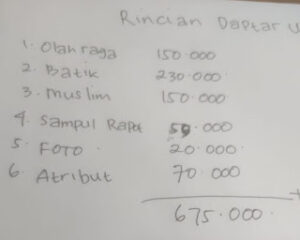 Rincian Daptar U
1. Olahraga 150.000
2. Batik 230.000
3. Muslim 150.000
4. Sampul Rapot .000
5. FOTO 20.000
6. Atribut 70.000
+
675.000